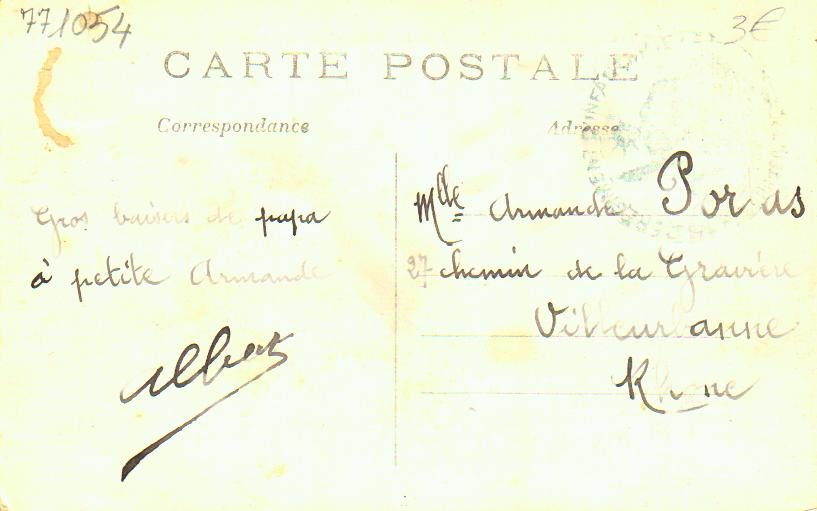 771054
3€
CARTE POSTALE
Correspondance
Adresse
Gros baisers de papa
à petite Armande
Albert
Mlle Armande Poras
27 chemin de la Gravière
Villeurbanne
Rhône